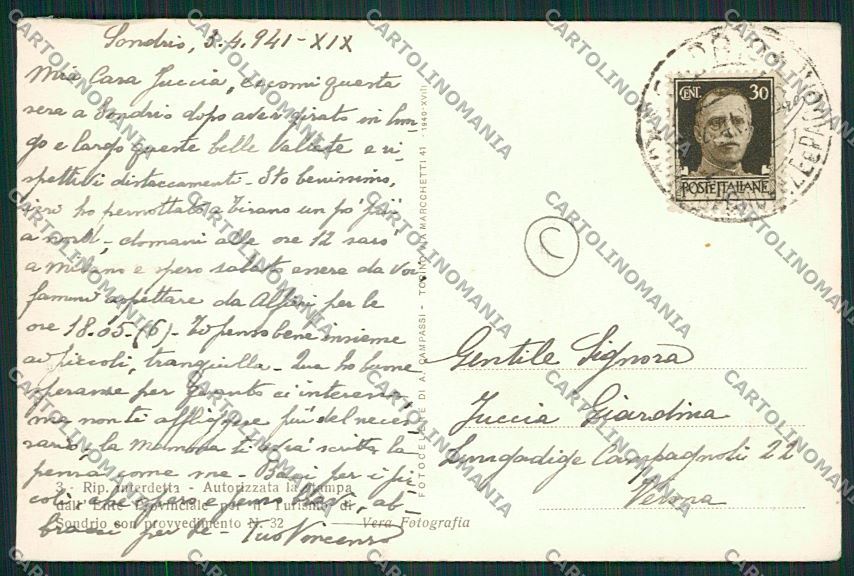 Sondrio, 3.4.941-XIX
Mia Cara Juccia, eccomi questa
sera a Sondrio dopo aver girato in lun-
go e largo queste belle vallate e ri-
spettivi distaccamenti. Sto benissimo,
ieri ho pernottato a Tirano un po' più
a nord, domani alle ore 12 sarò
a Milano e spero sabato essere da voi
fammi aspettare da Alfieri per le
ore 18.05-(6)- Io penso bene insieme
ai piccoli, tranquilla. Qua ho buone
speranze per quanto ci interessa
ma non te affliggere più del neces-
sario, la mamma ti avrà scritto la
pensa come me. Baci per i pic-
coli, che spero siano bravi, ab-
bracci per te - tuo Vincenzo
3 - Rip. interdetta - Autorizzata la stampa
dall'Ente Provinciale per il Turismo di
Sondrio con provvedimento N. 32
Vera Fotografia
FOTOCELERE DI A. CAMPASSI - TORINO VIA MARCCHETTI 41 - 1940-XVIII
CENT. 30
POSTE ITALIANE
C
Gentile Signora
Juccia Giardina
Lungadige Campagnoli 22
Verona
CARTOLINOMANIA